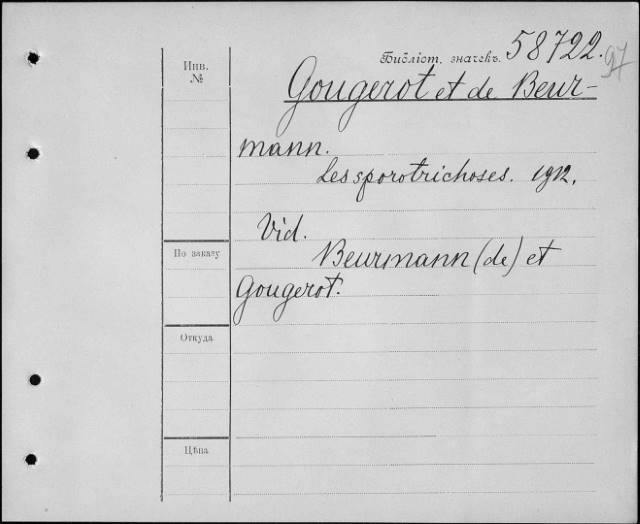 Библіот. значекъ. 58722.
97
Инв.
№
Gougerot et de Beur-
mann.
Les sporotrichoses. 1912.
Vid.
По заказу
Beurmann (de) et
Gougerot.
Откуда
Цѣна